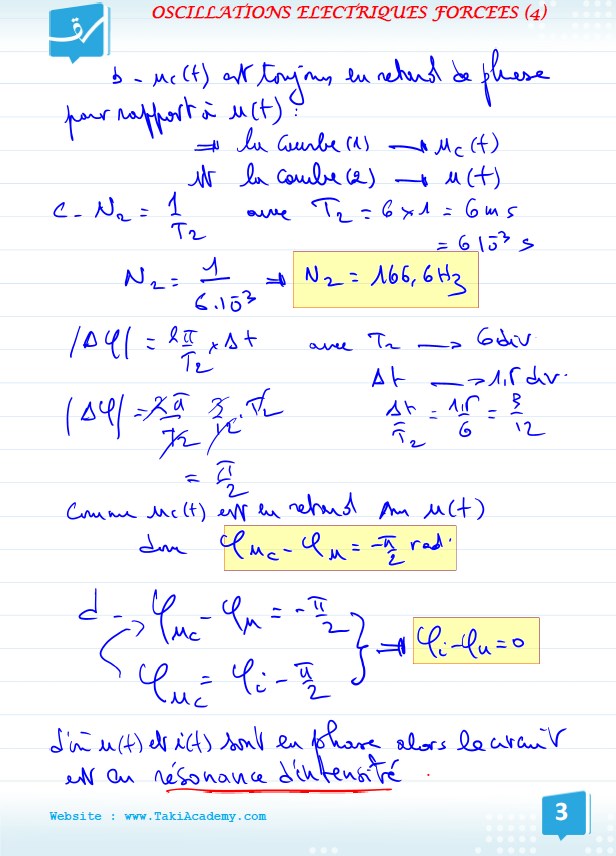 OSCILLATIONS ELECTRIQUES FORCEES (4)
b - uc(t) est toujours en retard de phase
par rapport à u(t) :
⇒ la courbe (1) → uc(t)
et la courbe (2) → u(t)
c - N2 = 1/T2 avec T2 = 6 × 1 = 6 ms
= 6 10⁻³ s
N2 = 1/6.10⁻³ ⇒ N2 = 166,6 Hz
|Δφ| = 2π/T2 × Δt avec T2 → 6 div
Δt → 1,5 div.
|Δφ| = 2π/T2 · 3/12 · T2 Δt/T2 = 1,5/6 = 3/12
= π/2
Comme uc(t) est en retard sur u(t)
donc φuc - φu = -π/2 rad.
d - φuc - φu = -π/2
φuc = φi - π/2 } ⇒ φi - φu = 0
d'où u(t) et i(t) sont en phase alors le circuit
est en résonance d'intensité.
Website : www.TakiAcademy.com
3